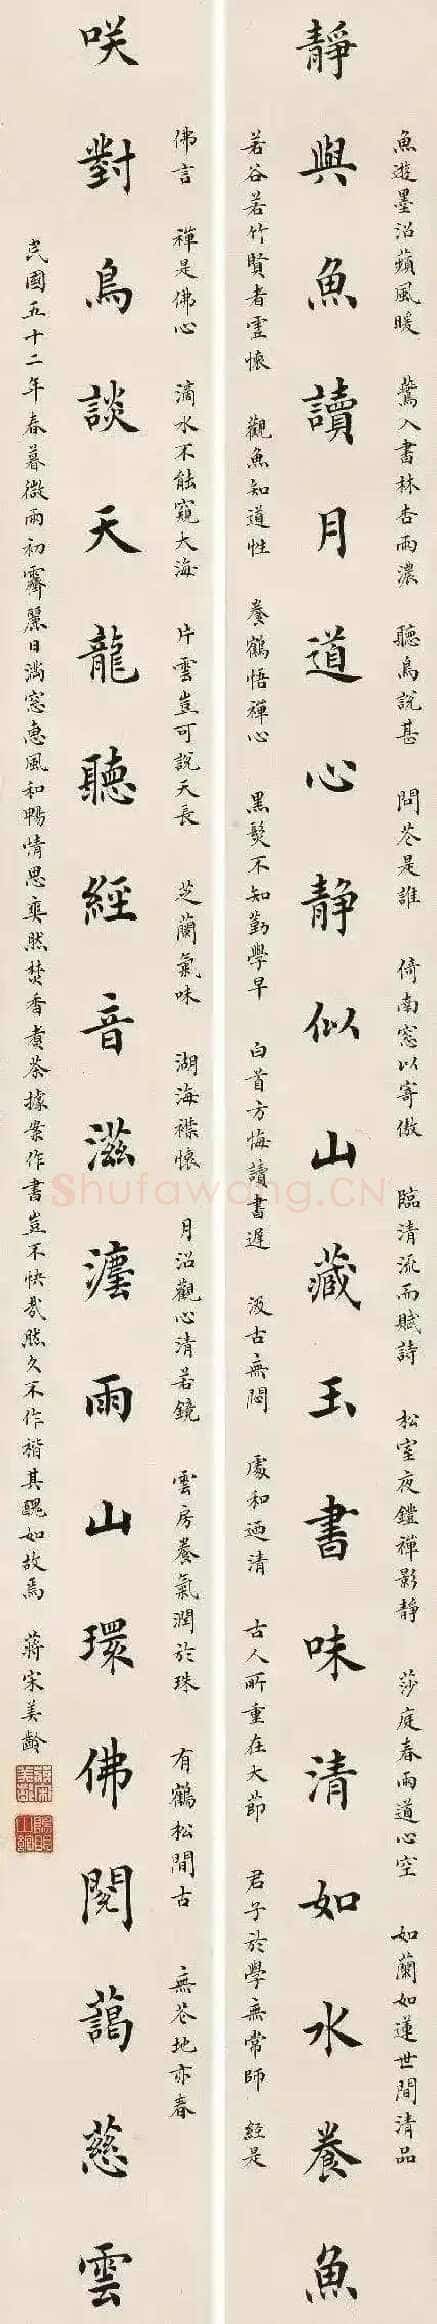 魚遊墨沼蘋風暖 鶯入書林杏雨濃 聽鳥說甚 問花是誰 倚南窓以寄傲 臨清流而賦詩 松室夜鐙禪影靜 莎庭春雨道心空 如蘭如蓮世間清品
靜與魚讀月道心靜似山藏玉書味清如水養魚
若谷若竹賢者虛懷 觀魚知道性 養鶴悟禪心 黑髮不知勤學早 白首方悔讀書遲 汲古無悶 處和迺清 古人所重在大節 君子於學無常師 經是
佛言 禪是佛心 滴水不能窺大海 片雲豈可說天長 芝蘭氣味 湖海襟懷 月沼觀心清若鏡 雲房養氣潤於珠 有鶴松間古 無花地亦春
咲對鳥談天龍聽經音滋澐雨山環佛閣藹慈雲
民國五十二年春暮微雨初霽麗日滿窓惠風和暢情思奕然焚香煮茶據案作書豈不快哉然久不作楷其醜如故焉 蔣宋美齡
Shufawang.CN